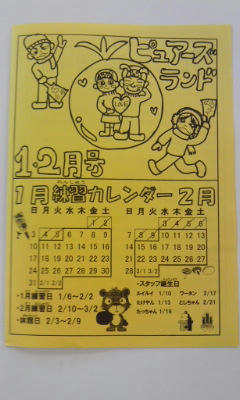 ピュアーズ
ランド
LOVE
1・2月号
1月練習カレンダー2月
日 月 火 水 木 金 土
1 2
3 4 5 6 7 8 9
10 11 12 13 14 15 16
17 18 19 20 21 22 23
24 25 26 27 28 29 30
31 2/1 2/2
日 月 火 水 木 金 土
3 4 5 6
7 8 9 10 11 12 13
14 15 16 17 18 19 20
21 22 23 24 25 26 27
28 3/1 3/2
・1月練習日 1/6〜2/2
・2月練習日 2/10〜3/2
・休館日 2/3〜2/9
・スタッフ誕生日
ルイルイ 1/10
ワーホン 2/17
たけやん 1/13
としちゃん 2/21
たっちゃん 1/19